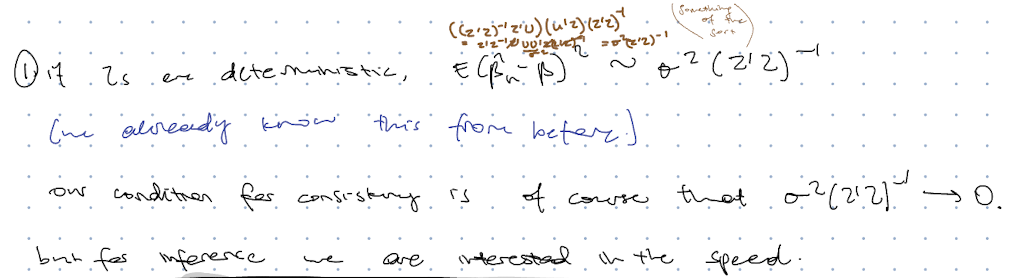 ((z'z)⁻¹z'U)(u'z)(z'z)⁻¹ (something of the sort)
= z'z⁻¹z'UU'z(z'z)⁻¹ = σ²(z'z)⁻¹
① if Zs are deterministic, E(β̂ₙ - β)² ~ σ²(Z'Z)⁻¹
(we already know this from before).
our condition for consistency is of course that σ²(Z'Z)⁻¹ → 0.
but for inference we are interested in the speed.